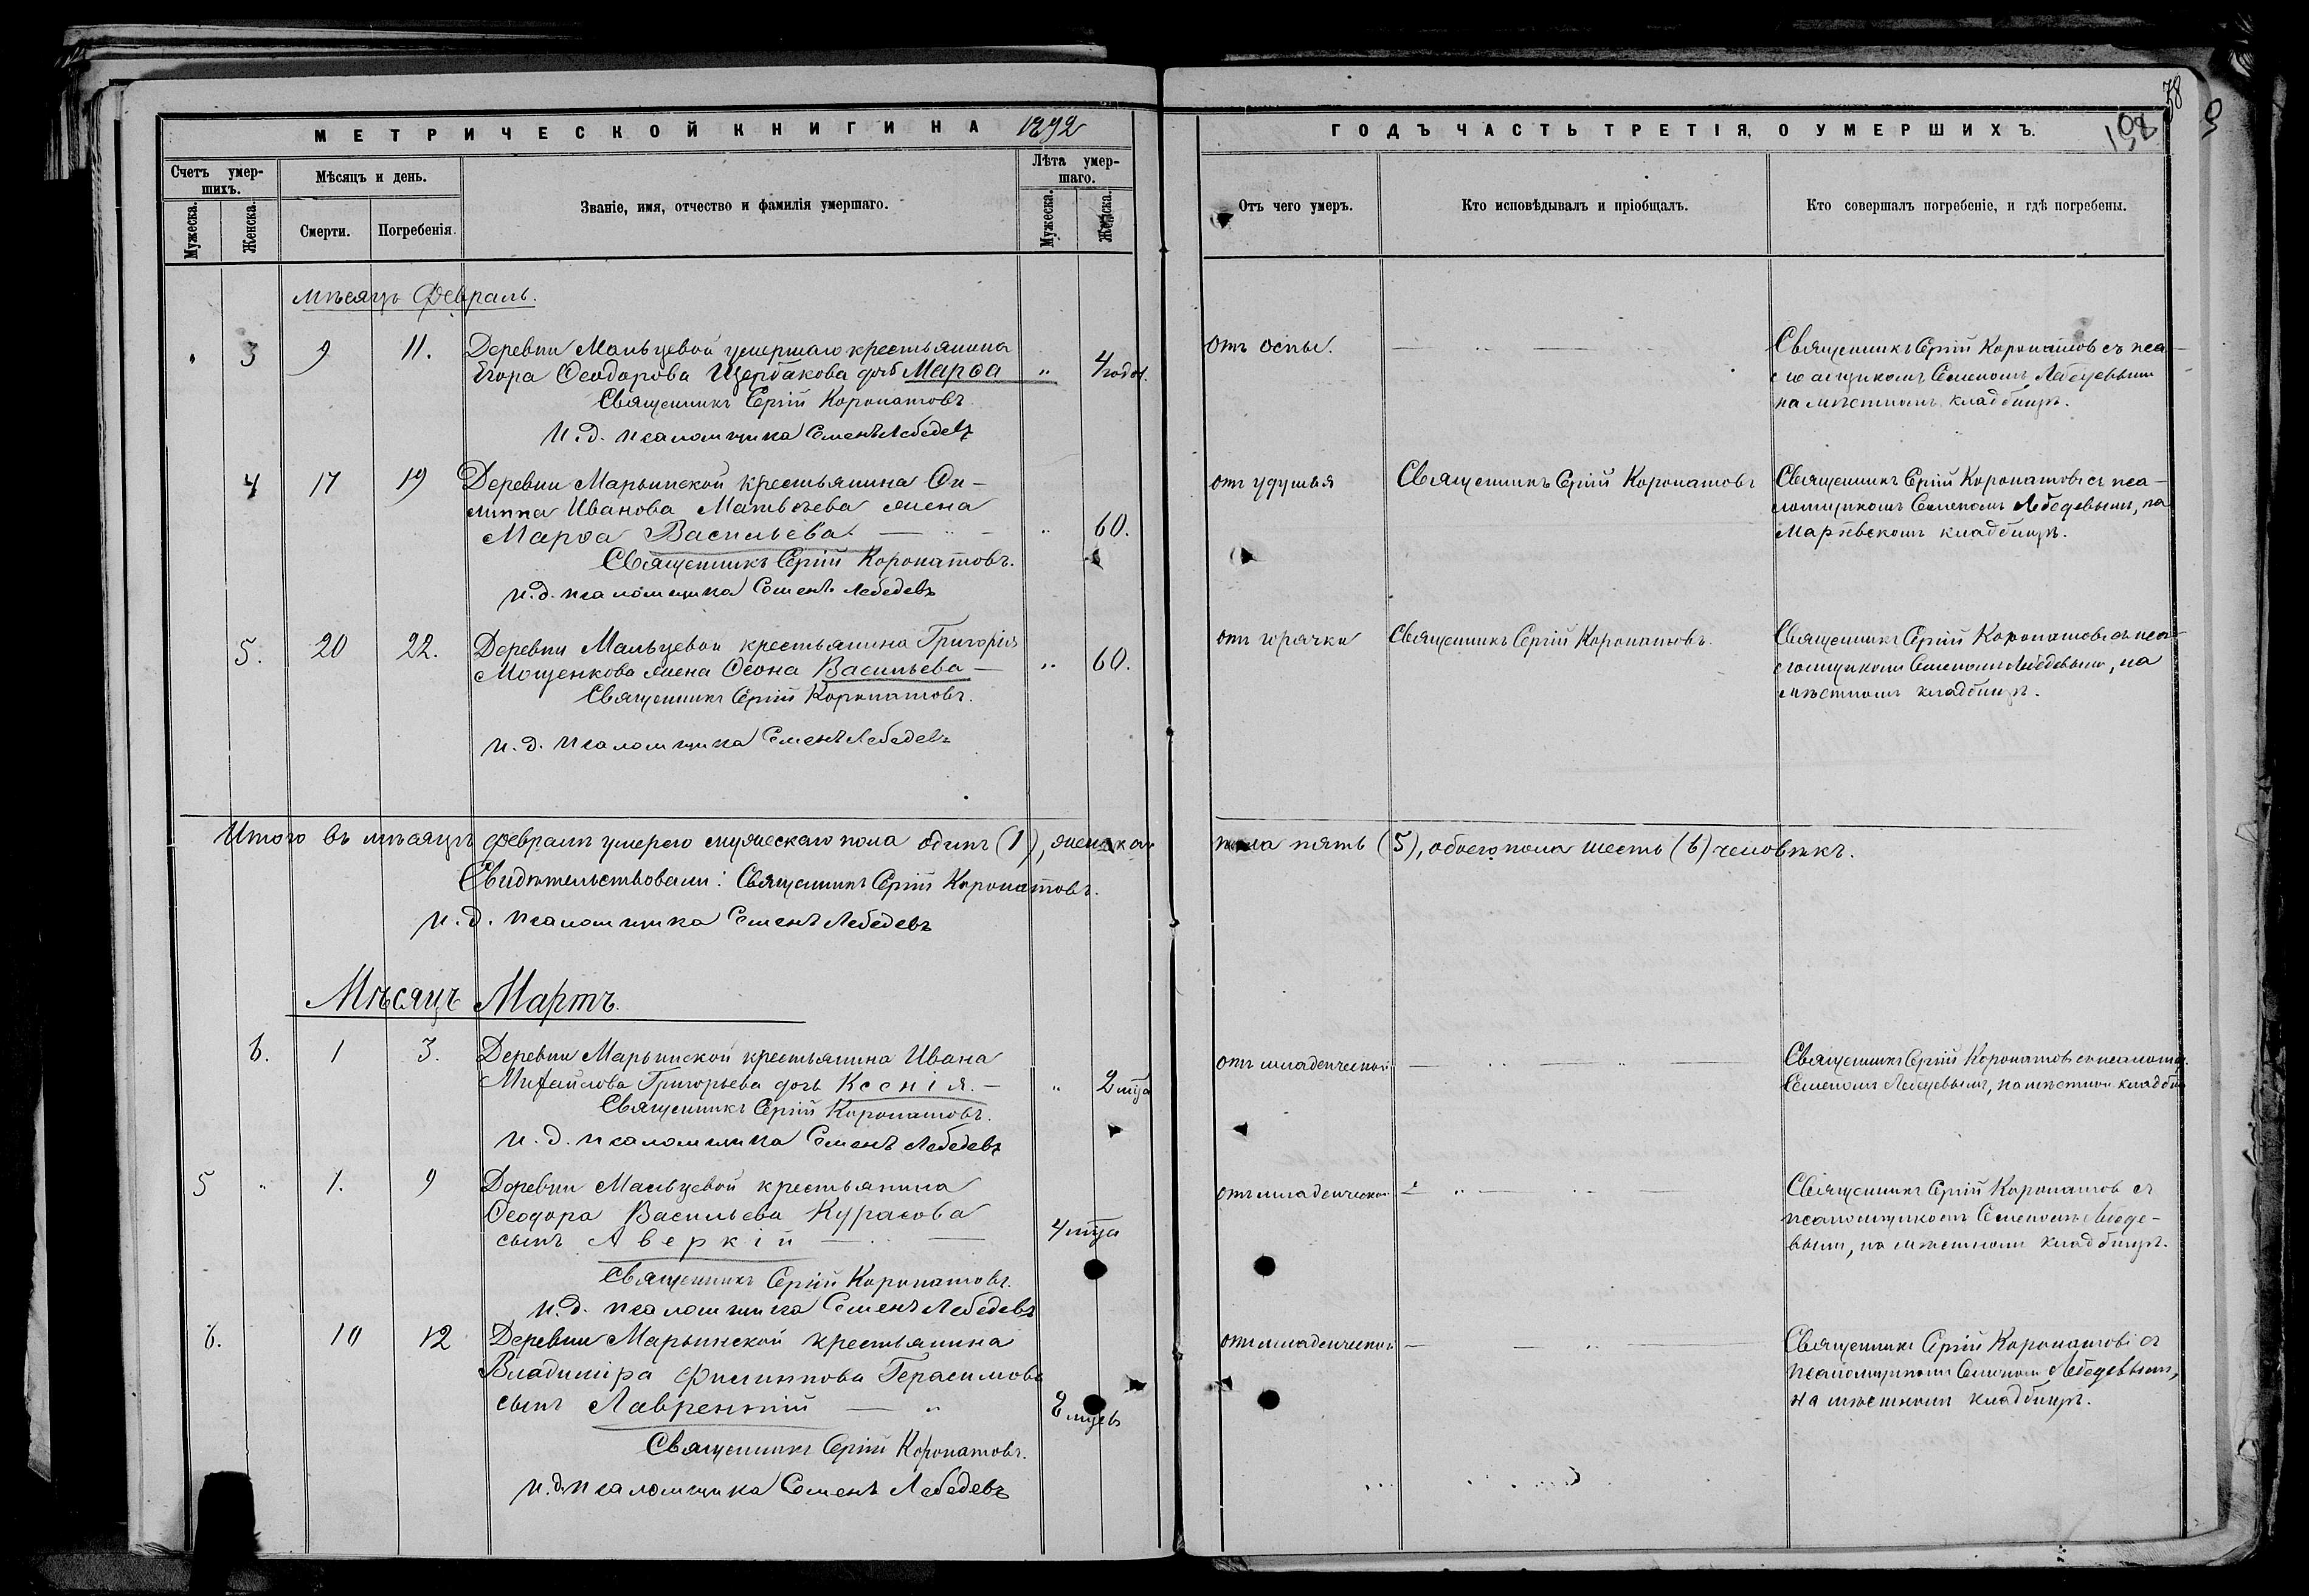 МЕТРИЧЕСКОЙ КНИГИ НА 1892
Счетъ умер-
шихъ.
Мѣсяцъ и день.
Званіе, имя, отчество и фамилія умершаго.
Лѣта умер-
шаго.
Мужеска.
Женска.
Смерти.
Погребенія.
Мужеска.
Женска.
мѣсяцъ Февраль.
3 9 11. Деревни Мальцевой умершаго крестьянина
Егора Ѳеодорова Щербакова дочь Марѳа „ 4 годов.
Священникъ Сергій Коронатовъ.
И. д. псаломщика Семенъ Лебедевъ
4 17 19 Деревни Марьинской крестьянина Фи-
липпа Иванова Матвѣева жена
Марѳа Васильева — „ 60.
Священникъ Сергій Коронатовъ.
И. д. псаломщика Семенъ Лебедевъ
5. 20 22. Деревни Мальцевой крестьянина Григорія
Мощенкова жена Ѳеона Васильева — „ 60.
Священникъ Сергій Коронатовъ.
И. д. псаломщика Семенъ Лебедевъ
Итого въ мѣсяцѣ февралѣ умерло мужескаго пола одинъ (1), женскаго
Свидѣтельствовали: Священникъ Сергій Коронатовъ.
И. д. псаломщика Семенъ Лебедевъ
Мѣсяцъ Мартъ.
6. 1 3. Деревни Марьинской крестьянина Ивана
Михайлова Григорьева дочь Ксенія. — „ 2 мца
Священникъ Сергій Коронатовъ.
И. д. псаломщика Семенъ Лебедевъ
5 „ 1. 9 Деревни Мальцевой крестьянина
Ѳеодора Васильева Курасова
сынъ Аверкій — 4 мца
Священникъ Сергій Коронатовъ.
И. д. псаломщика Семенъ Лебедевъ
6. 10 12 Деревни Марьинской крестьянина
Владиміра Филиппова Герасимова
сынъ Лаврентій — „ 2 мцевъ
Священникъ Сергій Коронатовъ.
И. д. псаломщика Семенъ Лебедевъ
ГОДЪ ЧАСТЬ ТРЕТІЯ, О УМЕРШИХЪ.
38
Отъ чего умеръ.
Кто исповѣдывалъ и пріобщалъ.
Кто совершалъ погребеніе, и гдѣ погребены.
отъ оспы.
Священникъ Сергій Коронатовъ съ пса-
ломщикомъ Семеномъ Лебедевымъ
на мѣстномъ кладбищѣ.
отъ удушья
Священникъ Сергій Коронатовъ
Священникъ Сергій Коронатовъ съ пса-
ломщикомъ Семеномъ Лебедевымъ, на
кладбищѣ.
отъ горячки
Священникъ Сергій Коронатовъ.
Священникъ Сергій Коронатовъ съ пса-
ломщикомъ Семеномъ Лебедевымъ, на
мѣстномъ кладбищѣ.
пола пять (5), обоего пола шесть (6) человѣкъ.
отъ младенческой
Священникъ Сергій Коронатовъ съ псаломщ.
Семеномъ Лебедевымъ, на мѣстном кладби
отъ младенческой
Священникъ Сергій Коронатовъ съ
псаломщикомъ Семеномъ Лебеде-
вымъ, на мѣстномъ кладбищѣ.
отъ младенческой
Священникъ Сергій Коронатовъ съ
псаломщикомъ Семеномъ Лебедевымъ,
на мѣстномъ кладбищѣ.